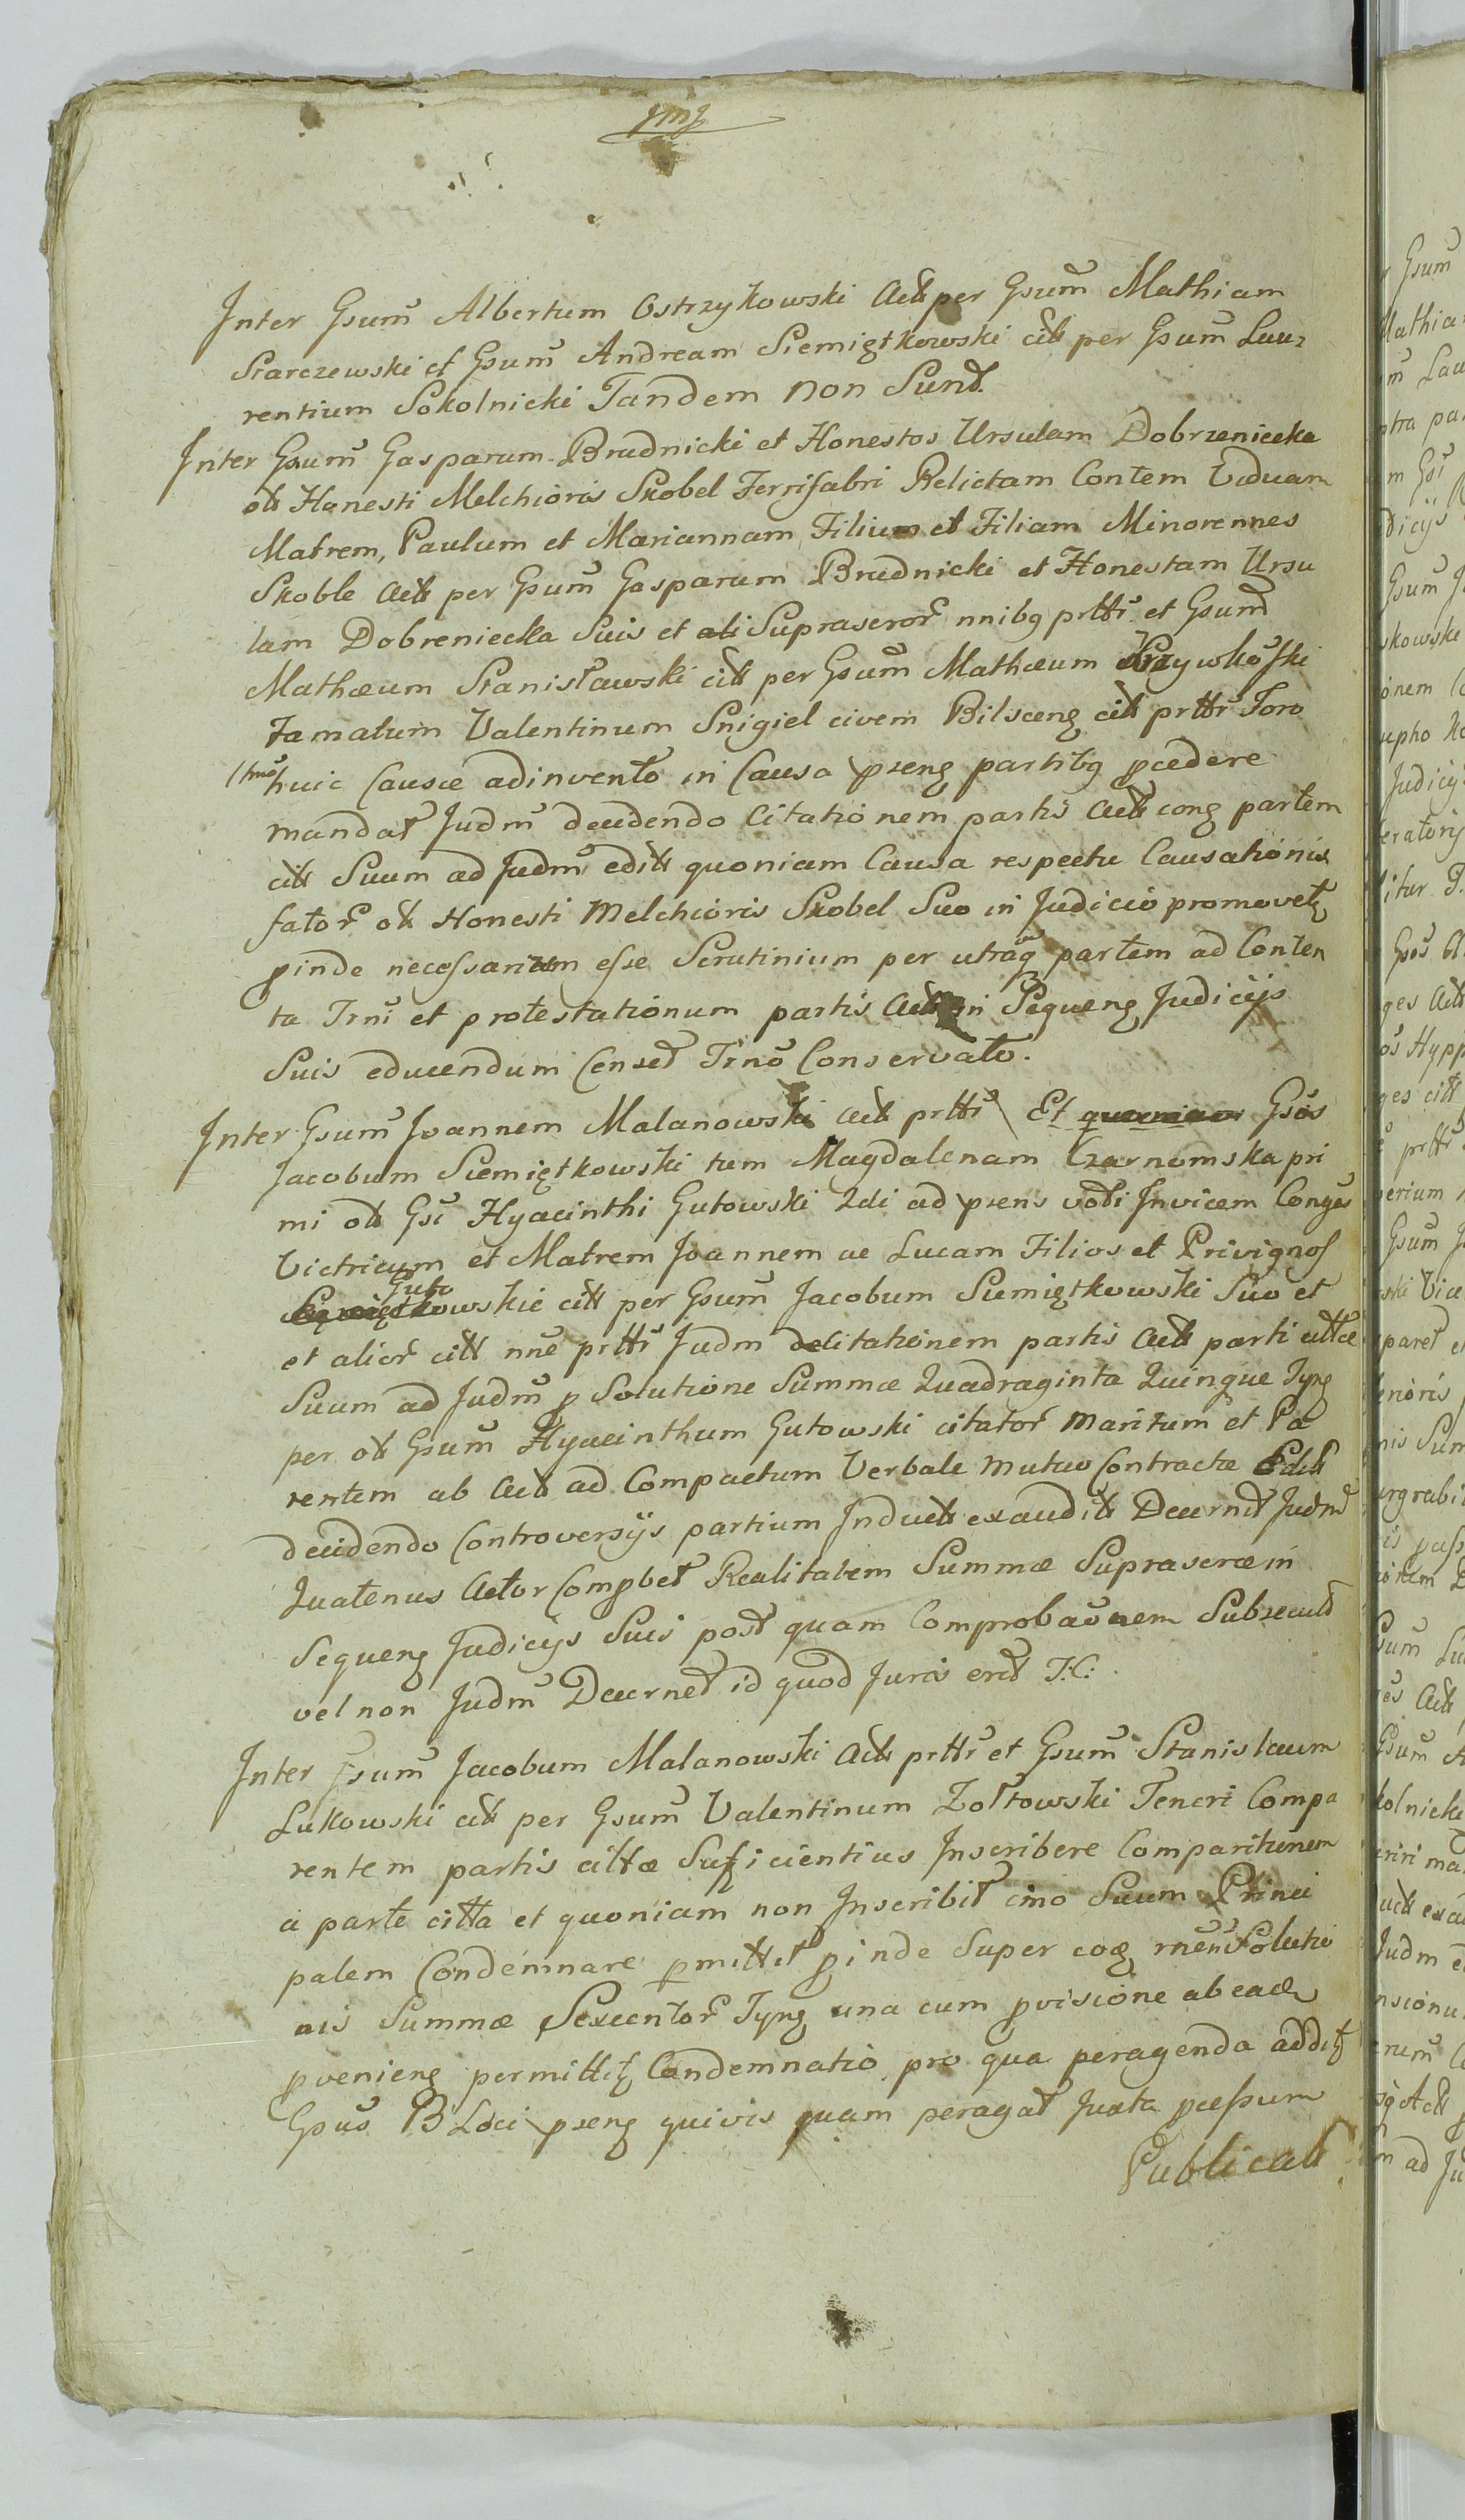 Inter Gsum Albertum Ostrzykowski Actt per Gsum Mathiam
Starczewski et Gsum Andream Siemiątkowski citt per Gsum Lau
rentium Sokolnicki Tandem non Sunt.
Inter Gsum Gasparum Brudnicki et Honestos Ursulam Dobrzeniecka
ott Honesti Melchioris Skobel Ferrifabri Relictam Contem Viduam
Matrem, Paulum et Mariannam Filium et Filiam Minorennes
Skoble Actt per Gsum Gasparum Brudnicki et Honestam Ursu
lam Dobreniecka Suis et ali Suprascror nnibq prtti et Gsum
Mathæum Stanisławski citt per Gsum Mathæum Krzywkoski
Famatum Valentinum Snigiel civem Bilscenq citt prttr Foro
huic Causæ adinvento in Causa psenq partibq pcedere
mandat Judm decidendo Citationem partis Actt conq partem
citt Suum ad Judm editt quoniam Causa respectu Causationis
fator ott Honesti Melchioris Skobel Suo in Judicio promovetq
pinde necessarium esse Scrutinium per utraq partem ad Conten
ta Trni et protestationum partis Actt in Sequenq Judicijs
Suis educendum Censet Trno Conservato.
Inter Gsum Joannem Malanowski Actt prtti Et quoniam Gsos
Jacobum Siemiątkowski tum Magdalenam Czarnomska pri
mi ott Gsi Hyacinthi Gutowski 2di ad psens voti Invicem Conges
Victricum et Matrem Joannem ac Lucam Filios et Privignos
Guto
Siemiątkowskie citt per Gsum Jacobum Siemiątkowski Suo et
et alior citt nne prtti Judm de Citationem partis Actt parti cittæ
Suum ad Judm p Solutione Summæ Quadraginta Quinque Tynq
per ott Gsum Hyacinthum Gutowski citator Maritum et Pa
rentem ab Actt ad Compactum Verbale mutuo Contractæ Editt
decidendo Controversijs partium Inductt exauditt Decernit Judm
Quatenus Actor Compbet Realitatem Summæ Suprascræ in
Sequenq Judicijs Suis post quam Comprobaonem Subsecutt
vel non Judm Decernet id quod Juris erit T: C:
Inter Gsum Jacobum Malanowski Actt prttr et Gsum Stanislaum
Lukowski citt per Gsum Valentinum Zołtowski Teneri Compa
rentem partis cittæ Sufficientius Inscribere Comparitionem
a parte citta et quoniam non Inscribit imo Suum Princi
palem Condemnare pmittit pinde Super eoq rnem Solutio
nis Summæ Sexcentor Tynq una cum pvisione ab eade
pvenienq permittitq Condemnatio pro qua peragenda additq
Gsus B Loci psenq quivis quam peragat Juxta pcessum
Publicatt